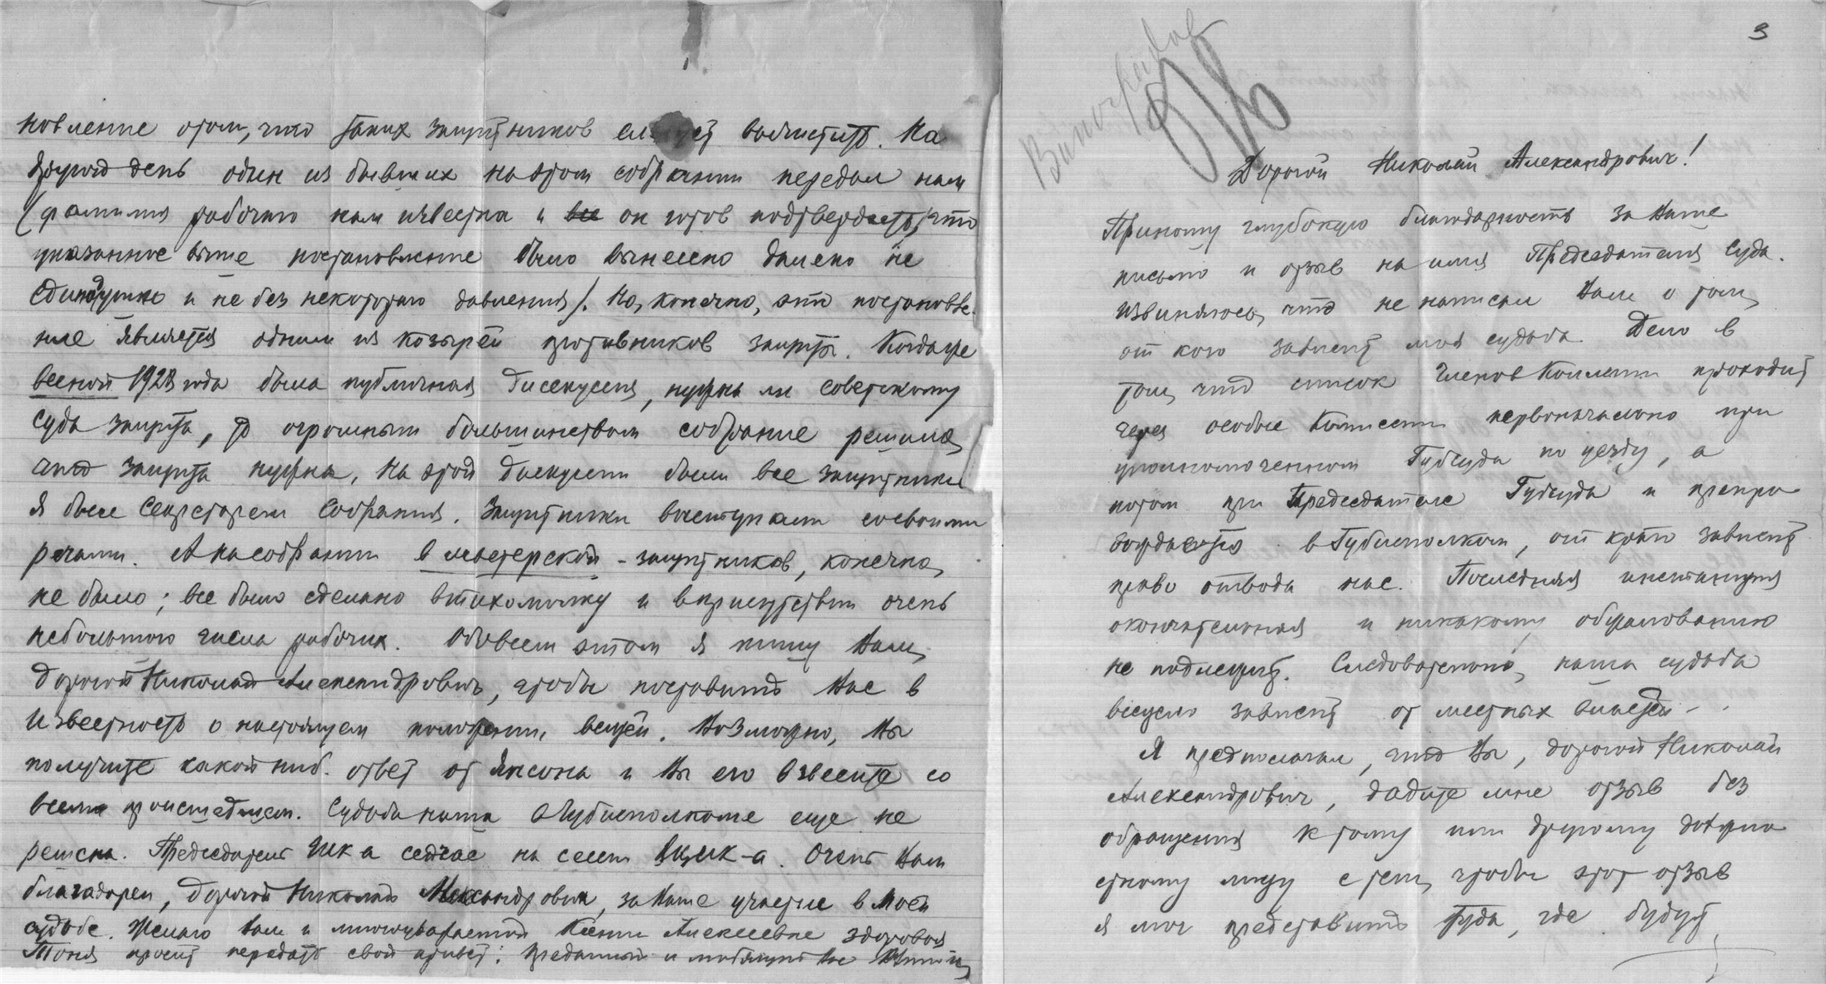 новление о том, что таких защитников следует вычистить. На
другой день один из бывших на этом собрании передал нам
(фамилия рабочего нам известна и он готов подтвердить, что
указанное выше постановление было вынесено далеко не
единодушно и не без некоторого давления). Но, конечно, это постановле-
ние является одним из козырей противников защиты. Когда же
весной 1923 года была публичная дискуссия, нужна ли советскому
суду защита, то огромным большинством собрание решило,
что защита нужна. На этой дискуссии были все защитники
Я был секретарем собрания. Защитники выступали со своими
речами. А на собрании в мастерской - защитников, конечно,
не было; все было сделано втихомолку и в присутствии очень
небольшого числа рабочих. Обо всем этом я пишу Вам,
дорогой Николай Александрович, чтобы поставить Вас в
известность о настоящем положении вещей. Возможно, Вы
получите какой ниб. ответ от Янсона и Вы его взвесите со
всем происшедшем. Судьба наша в Губисполкоме еще не
решена. Председатель ГИК а сейчас на сессии ВЦИК-а. Очень Вам
благодарен, дорогой Николай Александрович, за Ваше участие в моей
судьбе. Желаю Вам и многоуважаемой Ксении Алексеевне здоровья
Тоня просит передать свой привет. Преданный и любящий Вас
3
Виноградов
Дорогой Николай Александрович!
Приношу глубокую благодарность за Ваше
письмо и отзыв на имя Председателя Суда.
Извиняюсь, что не написал Вам о том,
от кого зависит моя судьба. Дело в
том, что список членов Коллегии проходит
через особые Комиссии первоначально при
уполномоченном Губсуда по уезду, а
потом при Председателе Губсуда и препро-
вождается в Губисполком, от кого зависит
право отвода нас. Последняя инстанция
окончательная и никакому обжалованию
не подлежит. Следовательно, наша судьба
всецело зависит от местных властей..
Я предполагал, что Вы, дорогой Николай
Александрович, дадите мне отзыв без
обращения к тому или другому должно-
стному лицу с тем, чтобы этот отзыв
я мог представить туда, где будут